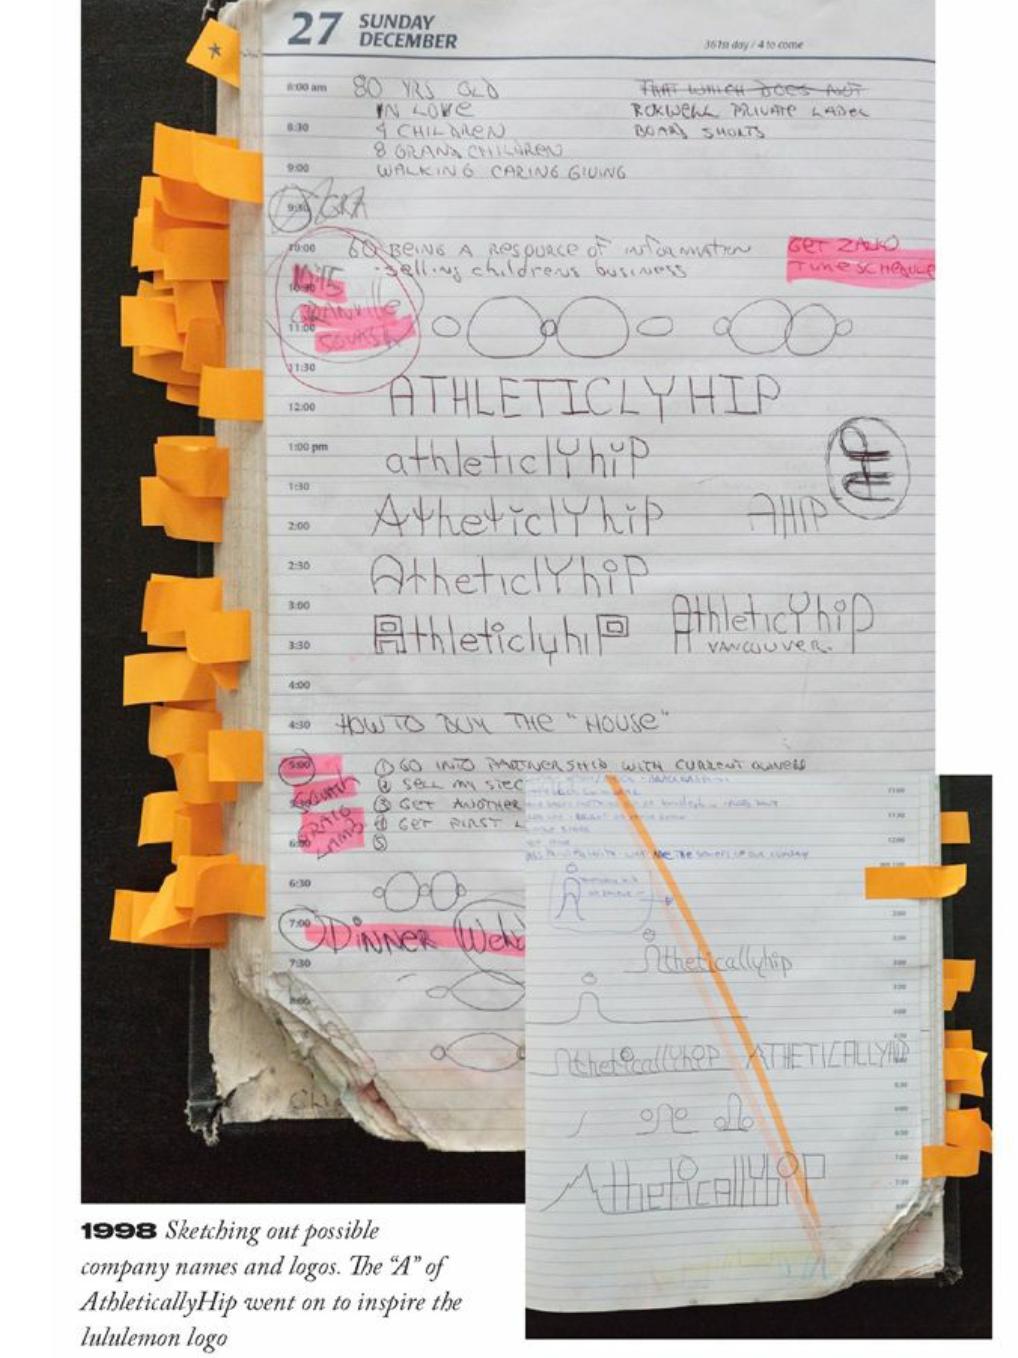 27 SUNDAY
DECEMBER
361st day / 4 to come
8:00 am 80 YRS OLD
IN LOVE
8:30 4 CHILDREN
8 GRAND CHILDREN
9:00 WALKING CARING GIVING
THAT WHICH DOES NOT
ROKWELL PRIVATE LABEL
BOARD SHORTS
9:30
10:00 60 BEING A RESOURCE OF INFORMATION
· selling childrens business
GET
TIME SCHEDULE
10:30
GRANVILLE
11:00
SQUASH
11:30
ATHLETICLYHIP
12:00
1:00 pm athleticlyhip
1:30
2:00 AtheticlYhip AHIP
2:30 AtheticlYhiP
3:00
3:30 Athleticlyhip
AthleticYhip
VANCOUVER.
4:00
4:30 HOW TO BUY THE "HOUSE"
5:00 ① GO INTO PARTNERSHIP WITH CURRENT OWNERS
② SELL MY
③ GET ANOTHER
④ GET FIRST
⑤
SQUASH
CRAIG
LAMB
6:00
6:30
7:00 DINNER
7:30
8:00
11:00
11:30
12:00
2:00
Atheticallyhip
3:00
Atheticallyhip ATHETICALLYHIP
7:00
7:30
Atheticallyhip
1998 Sketching out possible
company names and logos. The “A” of
AthleticallyHip went on to inspire the
lululemon logo